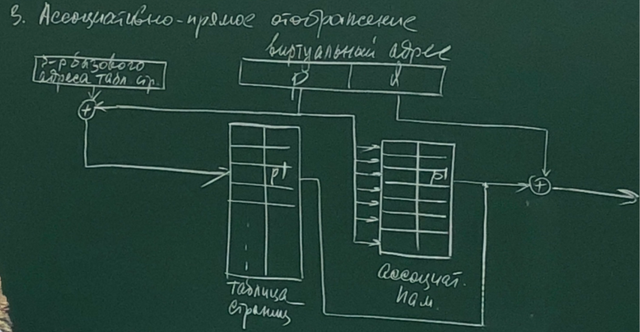 3. Ассоциативно-прямое отображение
виртуальный адрес
р-р базового
адреса табл. стр.
p d
+
p'
p'
+
таблица
страниц
ассоциат.
пам.